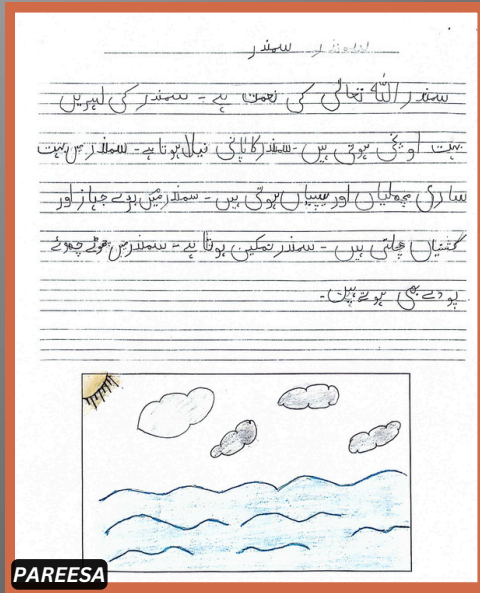 سمندر سمندر
سمندر اللہ تعالٰی کی نعمت ہے ۔ سمندر کی لہریں
بہت اونچی ہوتی ہیں ۔ سمندر کا پانی نیلا ہوتا ہے ۔ سمندر میں بہت
ساری مچھلیاں اور سیپیاں ہوتی ہیں ۔ سمندر میں بڑے جہاز اور
کشتیاں چلتی ہیں ۔ سمندر نمکین ہوتا ہے ۔ سمندر میں چھوٹے چھوٹے
پودے بھی ہوتے ہیں ۔
PAREESA